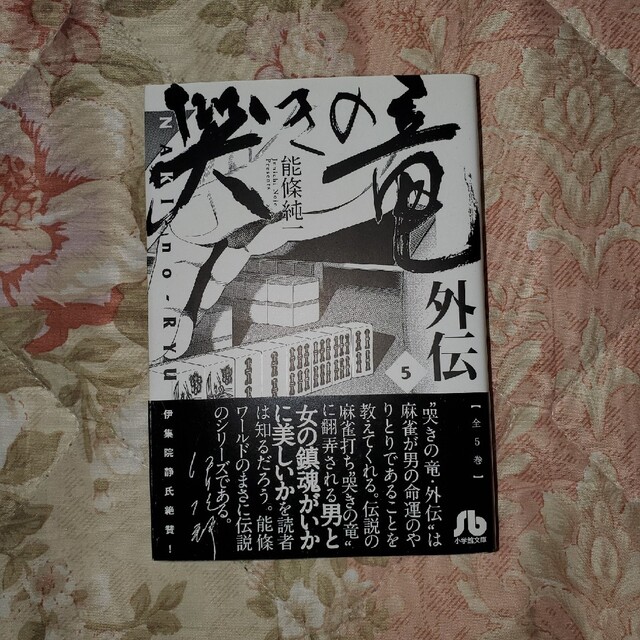 哭きの竜
外伝
能條純一
Junichi Nojo
Presents
NAKI-no-RYU
5
【全5巻】
"哭きの竜・外伝"は
麻雀が男の命運のや
りとりであることを
教えてくれる。伝説の
麻雀打ち"哭きの竜"
に翻弄される男と
女の鎮魂がいか
に美しいかを読者
は知るだろう。能條
ワールドのまさに伝説
のシリーズである。
伊集院静氏絶賛!
小学館文庫